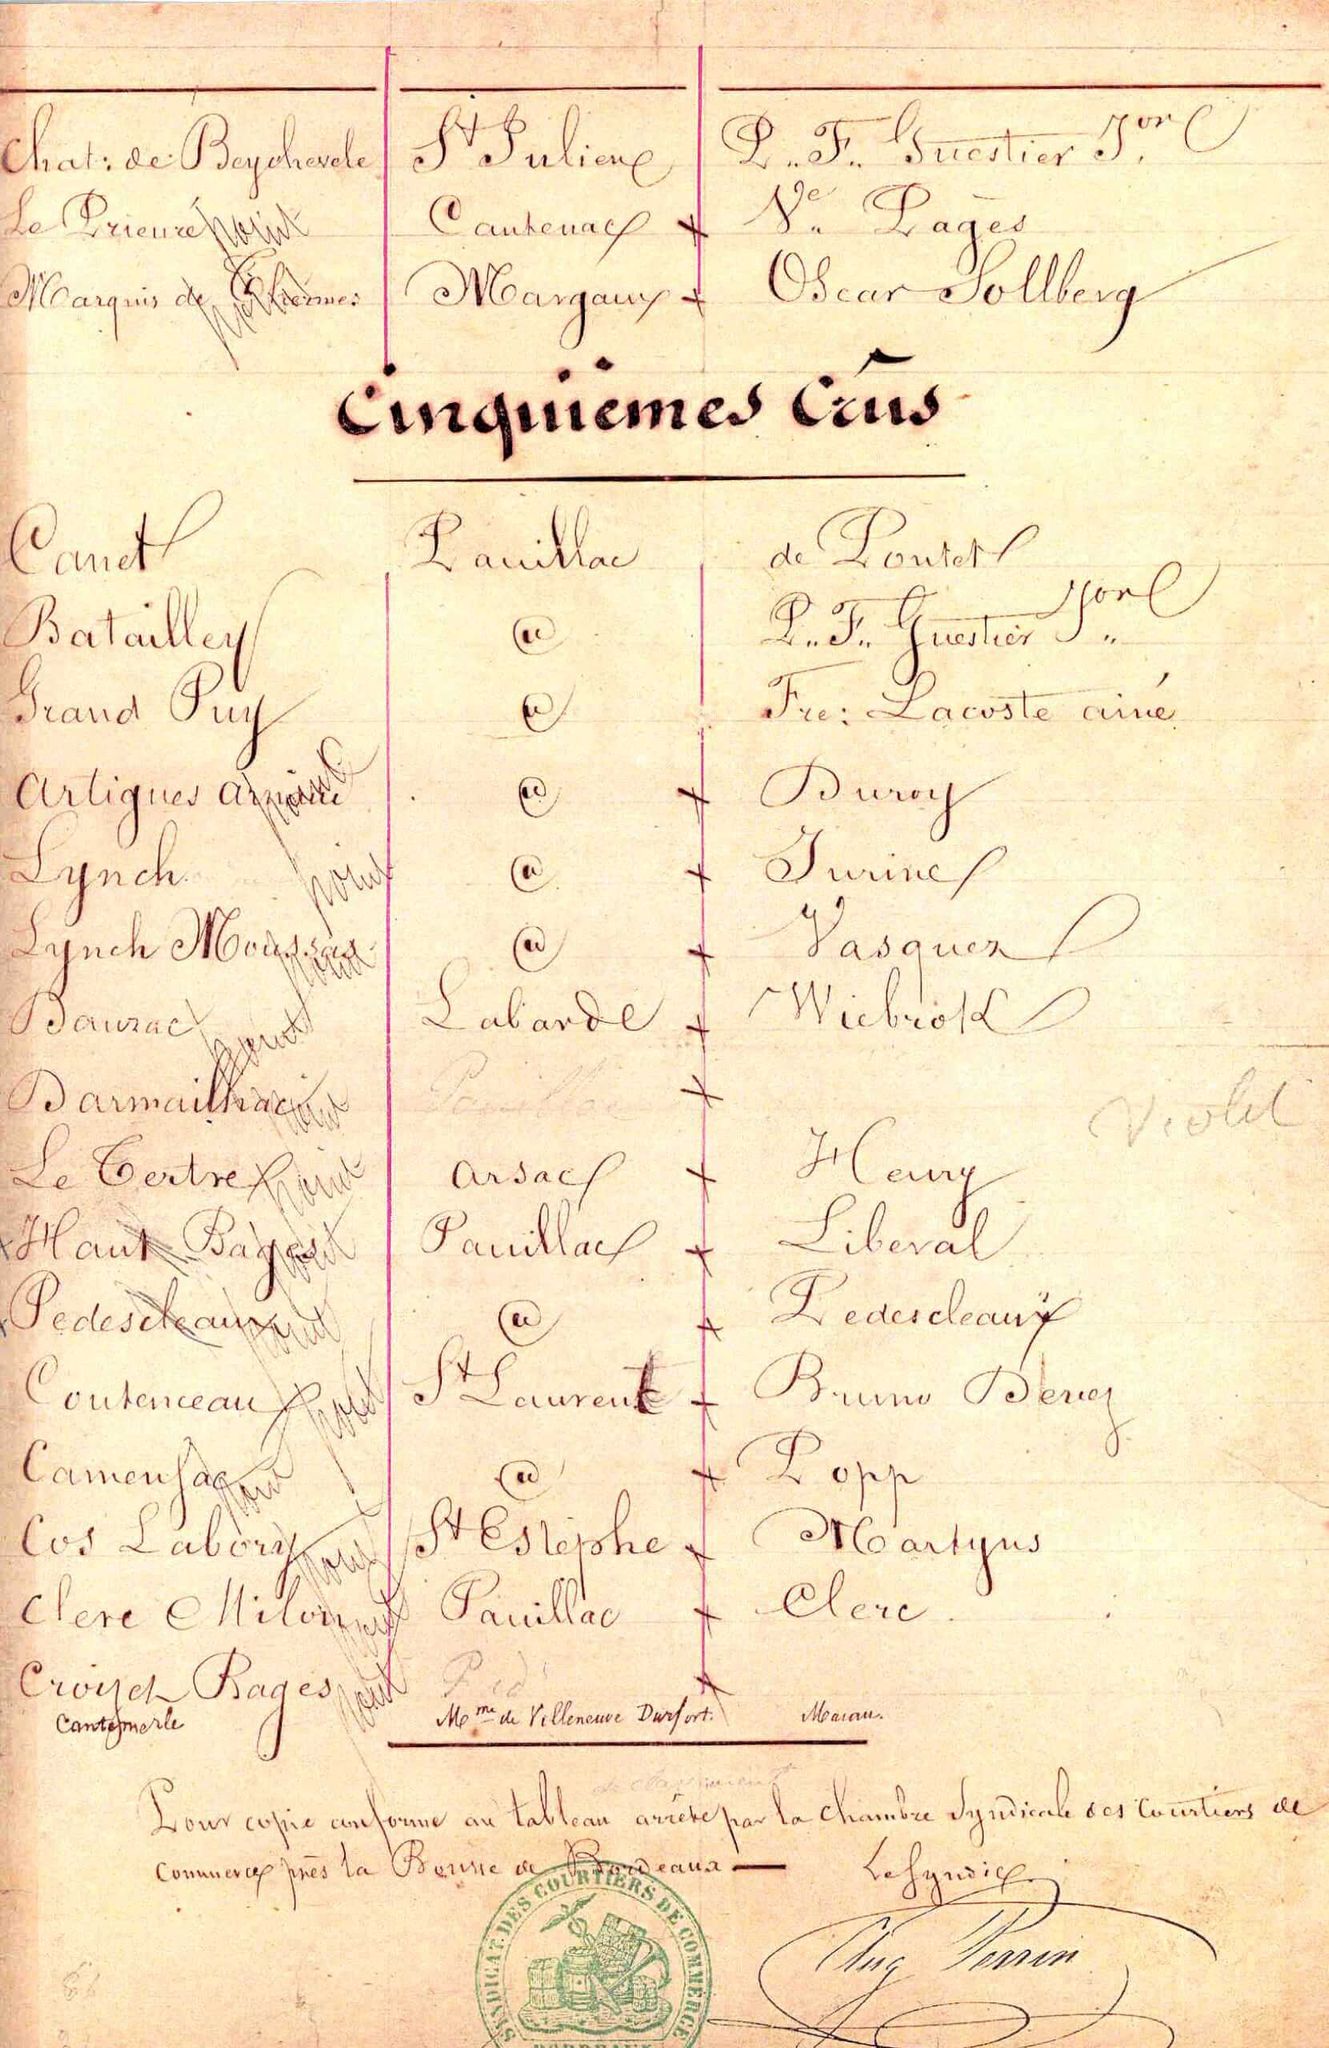 Chat: de Beychevele St Julien P. F. Guestier Jor
Le Prieuré point Cantenac Ve Pagès
Marquis de Thermes point Margaux Oscar Sollberg
Cinquièmes Crûs
Canet Pauillac de Pontet
Batailley @ P. F. Guestier Jor
Grand Puy @ Fre: Lacoste ainé
Artigues Arnaud point @ Duroy
Lynch point @ Jurine
Lynch Moussas point @ Vasquez
Dauzac point Labarde Wiebrok
Darmailhac point Pauillac
Violet
Le Tertre point Arsac Henry
Haut Bages point Pauillac Liberal
Pedescleaux point @ Pedescleaux
Coutenceau point St Laurent Bruno Devez
Camensac point @ Popp
Cos Labory point St Estèphe Martyns
Clerc Milon point Pauillac Clerc.
Croizet Bages point
Cantemerle Mme de Villeneuve Durfort. Macau.
Pour copie conforme au tableau arrêté par la Chambre Syndicale des Courtiers de
Commerce près la Bourse de Bordeaux — Le Syndic
SYNDICAT DES COURTIERS DE COMMERCE BORDEAUX
Aug Perrin